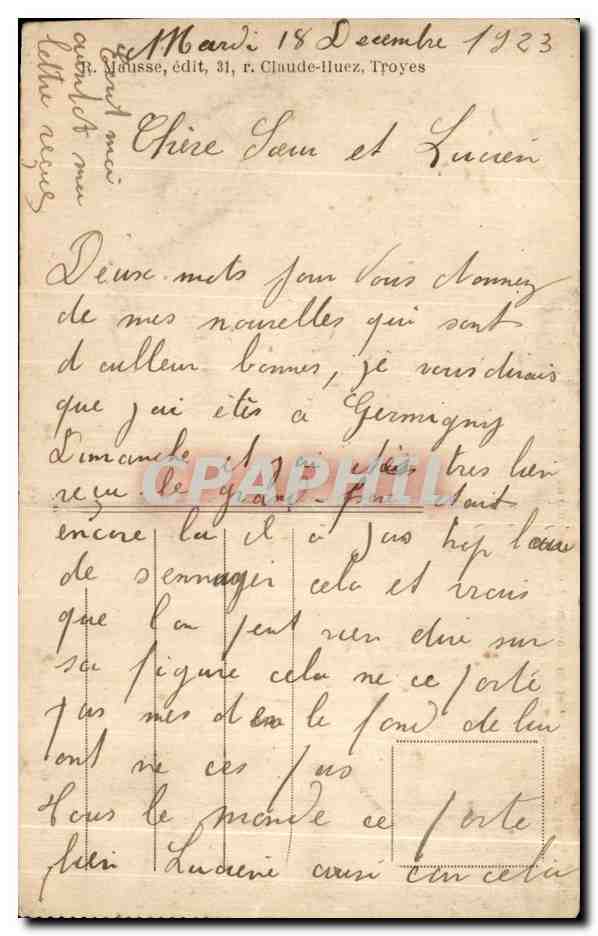 Mardi 18 Decembre 1923
R. Mausse, édit, 31, r. Claude-Huez, Troyes
Ecrit moi
avant ma
lettre reçue
Chère Sœur et Lucien
Deux mots pour vous donnez
de mes nouvelles qui sont
d ailleur bonnes, je vous dirais
que j ai étés a Germigny
Dimanche et j ai étés tres bien
reçu le grand-père etait
encore la il a pas trop l'aire
de s'ennuyer cela et vrais
que l'on peut rien dire sur
sa figure cela ne ce porte
pas mes dans le fond de lui
ont ne ces pas
Tous le monde ce porte
bien Lucien ausi cela
CPAPHIL